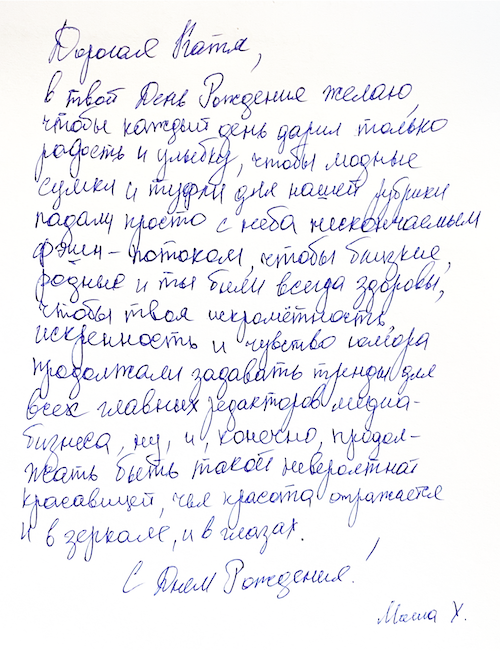 Дорогая Катя,
в твой День Рождения желаю,
чтобы каждый день дарил только
радость и улыбку, чтобы модные
сумки и туфли для нашей рубрики
падали просто с неба нескончаемым
фэшн-потоком, чтобы близкие,
родные и ты были всегда здоровы,
чтобы твоя искромётность,
искренность и чувство юмора
продолжали задавать тренды для
всех главных редакторов медиа-
бизнеса, ну, и, конечно, продол-
жать быть такой невероятной
красавицей, чья красота отражается
и в зеркале, и в глазах.
С Днем Рождения!
Маша Х.